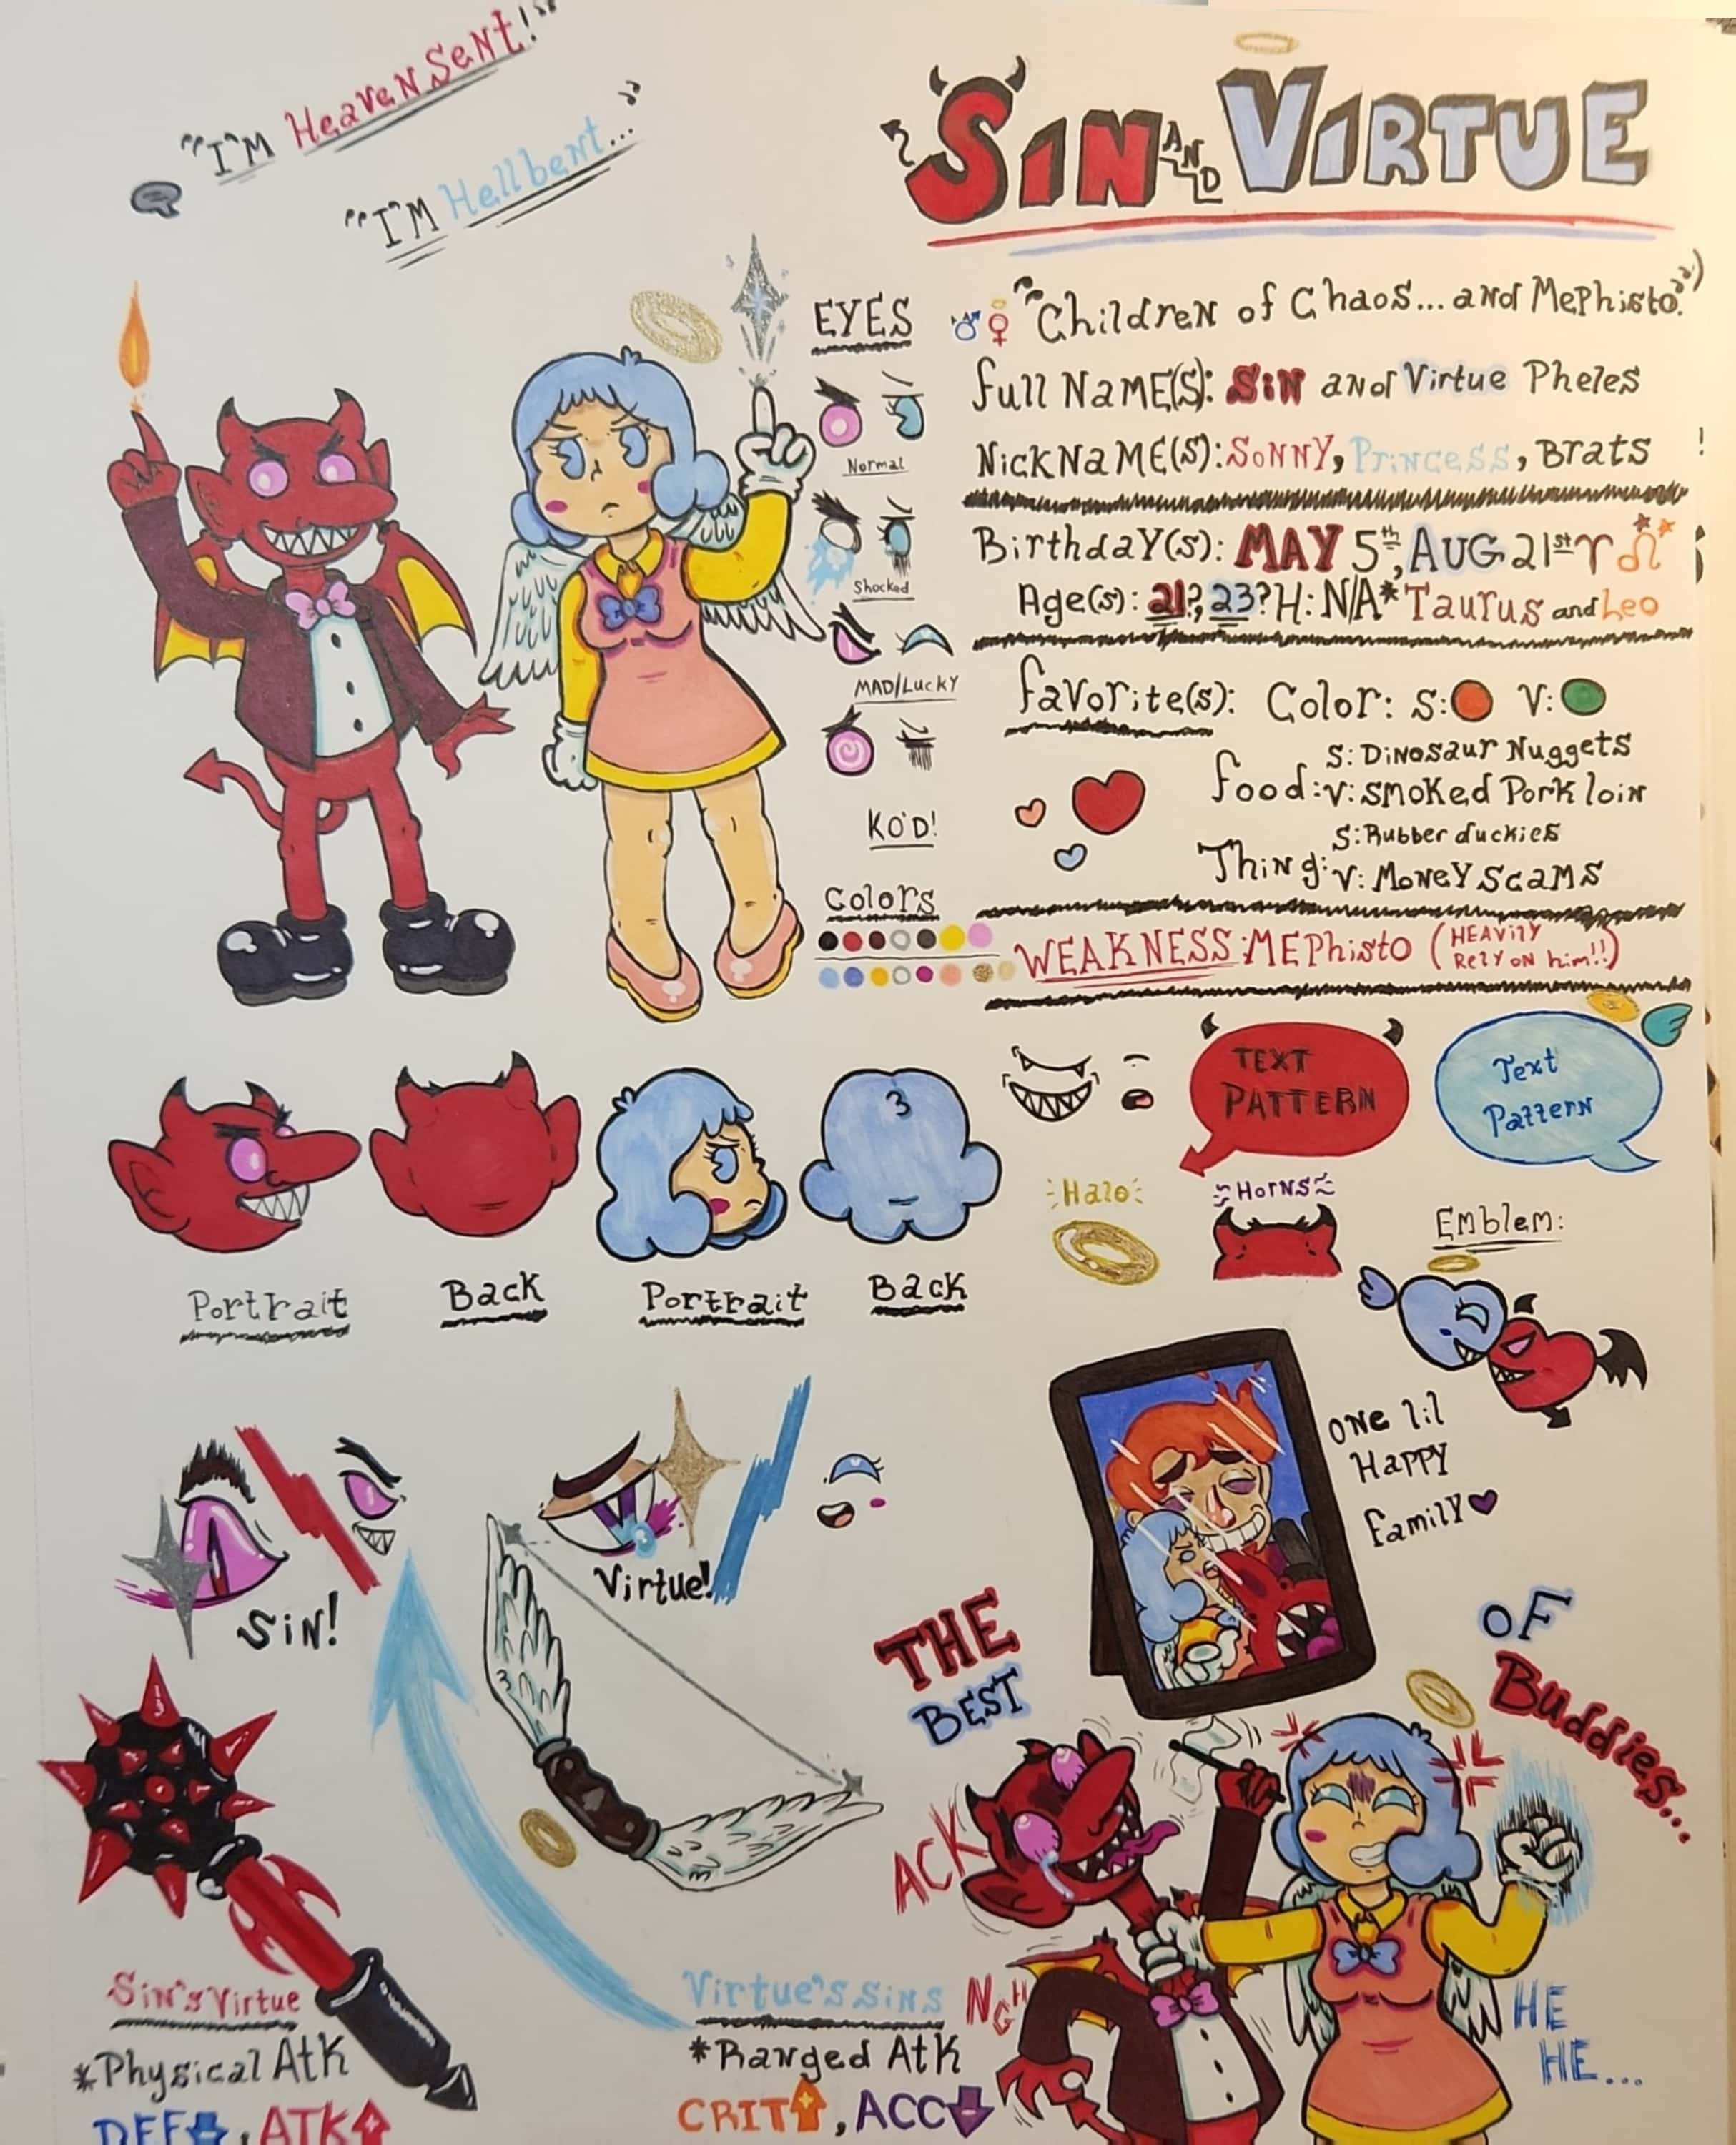 "I'M Heaven Sent!"
"I'M Hellbent..."
SIN AND VIRTUE
"Children of Chaos... and Mephisto."
Full Name(s): Sin and Virtue Pheles
Nickname(s): Sonny, Princess, Brats
Birthday(s): MAY 5th, AUG 21st ♈ ♌
Age(s): 21?, 23? H: N/A* Taurus and Leo
Favorite(s): Color: S: V:
Food: S: Dinosaur Nuggets
V: Smoked Pork loin
Thing: S: Rubber duckies
V: Money Scams
WEAKNESS: Mephisto (HEAVILY Rely on him!!)
EYES
Normal
Shocked
MAD/Lucky
KO'D!
Colors
TEXT PATTERN
Text Pattern
Halo
Horns
Emblem:
Portrait
Back
Portrait
Back
One lil Happy Family
Sin!
Virtue!
THE BEST OF Buddies...
ACK
NGH
HE HE...
Sin's Virtue
*Physical Atk
DEF, ATK
Virtue's Sins
*Ranged Atk
CRIT, ACC